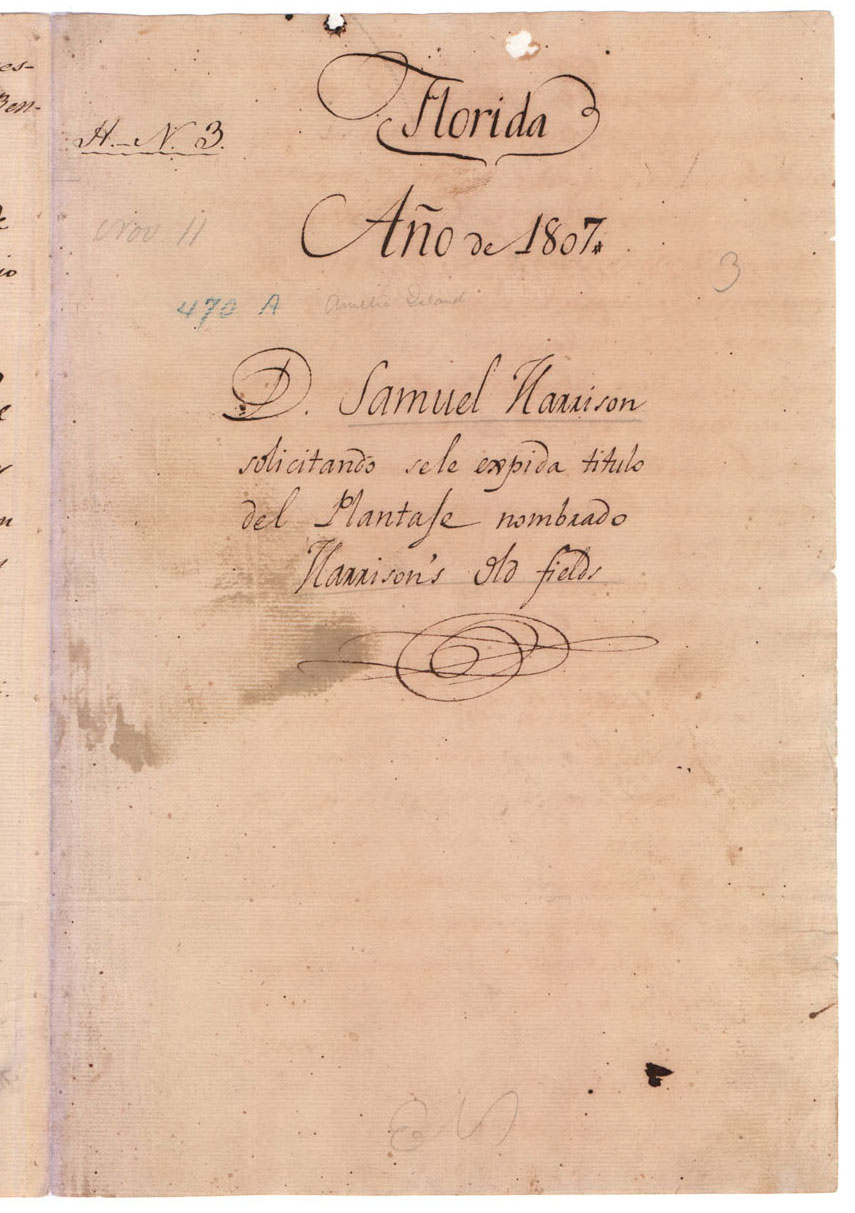 es-
Ben-
Florida
H. N. 3.
Año de 1807.
Nov. 11
3
472 A Amelia Island
D. Samuel Harrison
solicitando sele expida titulo
del Plantaje nombrado
Harrison's Old fields